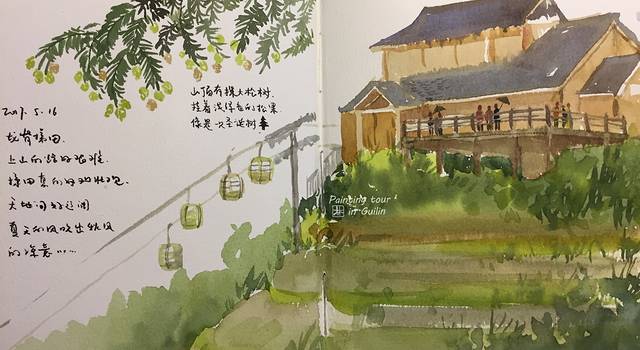 山顶有棵大松树.
挂着沉甸甸的松果
像是一只圣诞树
2017. 5. 16
龙脊梯田.
上山的路好艰难.
梯田真的好壮观.
天地间好辽阔
夏天的风吹出秋风
的凉意……
Painting tour
in Guilin